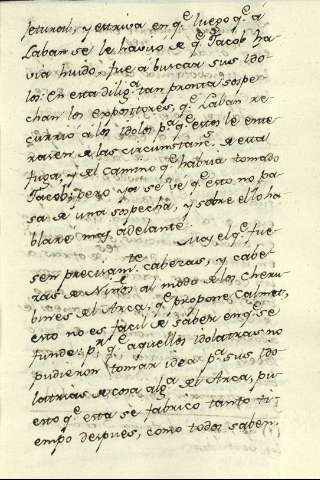 jetural, y estriva en q.e luego q.e á
Laban se le havisó de q.e Jacob ha-
via huido, fue a buscar sus Ido-
los. En esta dilig.a tan pronta sospe-
chan los expositores, q.e Laban re-
currió a los Idolos p.a q.e estos le ente-
rasen de las circunstanc.s de esta
fuga, y del camino q.e habria tomado
Jacob; pero ya se ve q.e esto no pa-
sa de una sospecha, y sobre ello ha-
blaré mas adelante.
Mas el q.e fue-
sen precisam.te caberas, y cabe-
ras de Niños al modo de los Cheru-
bines del Arca, q.e propone Calmet,
esto no es facil de saber en q.e se
funde: p.r q.e aquellos idolatras no
pudieron tomar idea p.a sus Ido-
latrias de cosa alg.a del Arca, pu-
esto q.e esta se fabricó tanto ti-
empo despues, como todos saben.